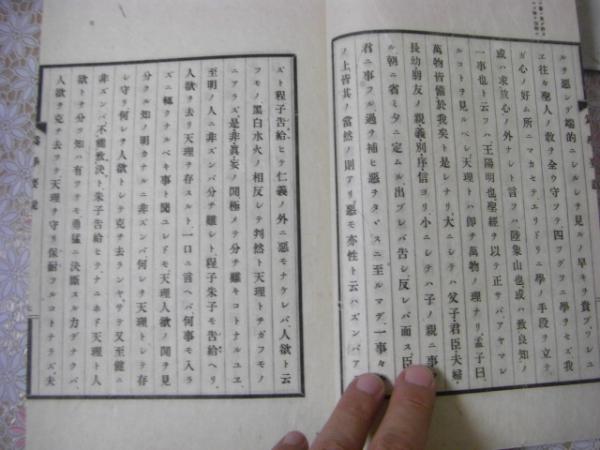 ルヲ惡シテ端的ニシルシヲ見ルノ早キヲ貴ブ、ワレユ
ヱ往々聖人ノ教ヲ全ク守ラズ四ブク三ク學ヒセズ我
ガ心ノ好ム所ニマカセテエリドリニ學ノ手段ヲ立テ、
或ハ求放心ノ外ナシト言フハ陸象山也、或ハ致良知ノ
一事也ト云フハ王陽明也、聖經ヲ以テ正サバアヤマレ
ルコトヲ見ルベシ、天理トハ即チ萬物ノ理ナリ、孟子曰、
萬物皆備於我矣ト是レナリ、大ニシテハ父子君臣夫婦、
長幼朋友ノ親義別序信ヨリ小ニシテハ子ノ親ニ事
ル朝ニ省ミタニ定ム、出ブレバ告シ、反レバ面ス、臣
君ニ事フル過ヲ補ヒ惡ヲタヾスニ至ルマデ一事々
ノ上皆其ノ當然ノ則アリ、惡モ亦性ト云ハズンバア
ズト程子告給ヒテ仁義ノ外ニ惡モナケレバ人欲ト云
フモノ黑白水火ノ相反シテ判然ト天理トチガフモノ
ニアラズ、是非眞妄ノ間極メテ分チ難キコトナルユヱ、
至明ノ人ニ非ズンバ分チ難シト、程子朱子モ告給ヘリ、
人欲ヲ去リ天理ヲ存スルト、一口ニ言ヘバ何事モ入ラ
ズニ極ラクナルベキ事ニ聞ユレドモ天理人欲ノ間ヲ見
分クル知ノ明カナルニ非ズンバ何レヲ天理トシテ存
シ守リ、何レヲ人欲トシテ克チ去ランヤ、サテ又至健ニ
非ズンバ、不能致決ト、朱子告給ヒテ、ナニホド天理ト人
欲トヲ分ヲ知ハ有フモ勇猛ニ決斷スル力ナクバ、
人欲ヲ克チ去ツテ天理ヲ守リ保耐フルコトナラズ、夫
爲學要說